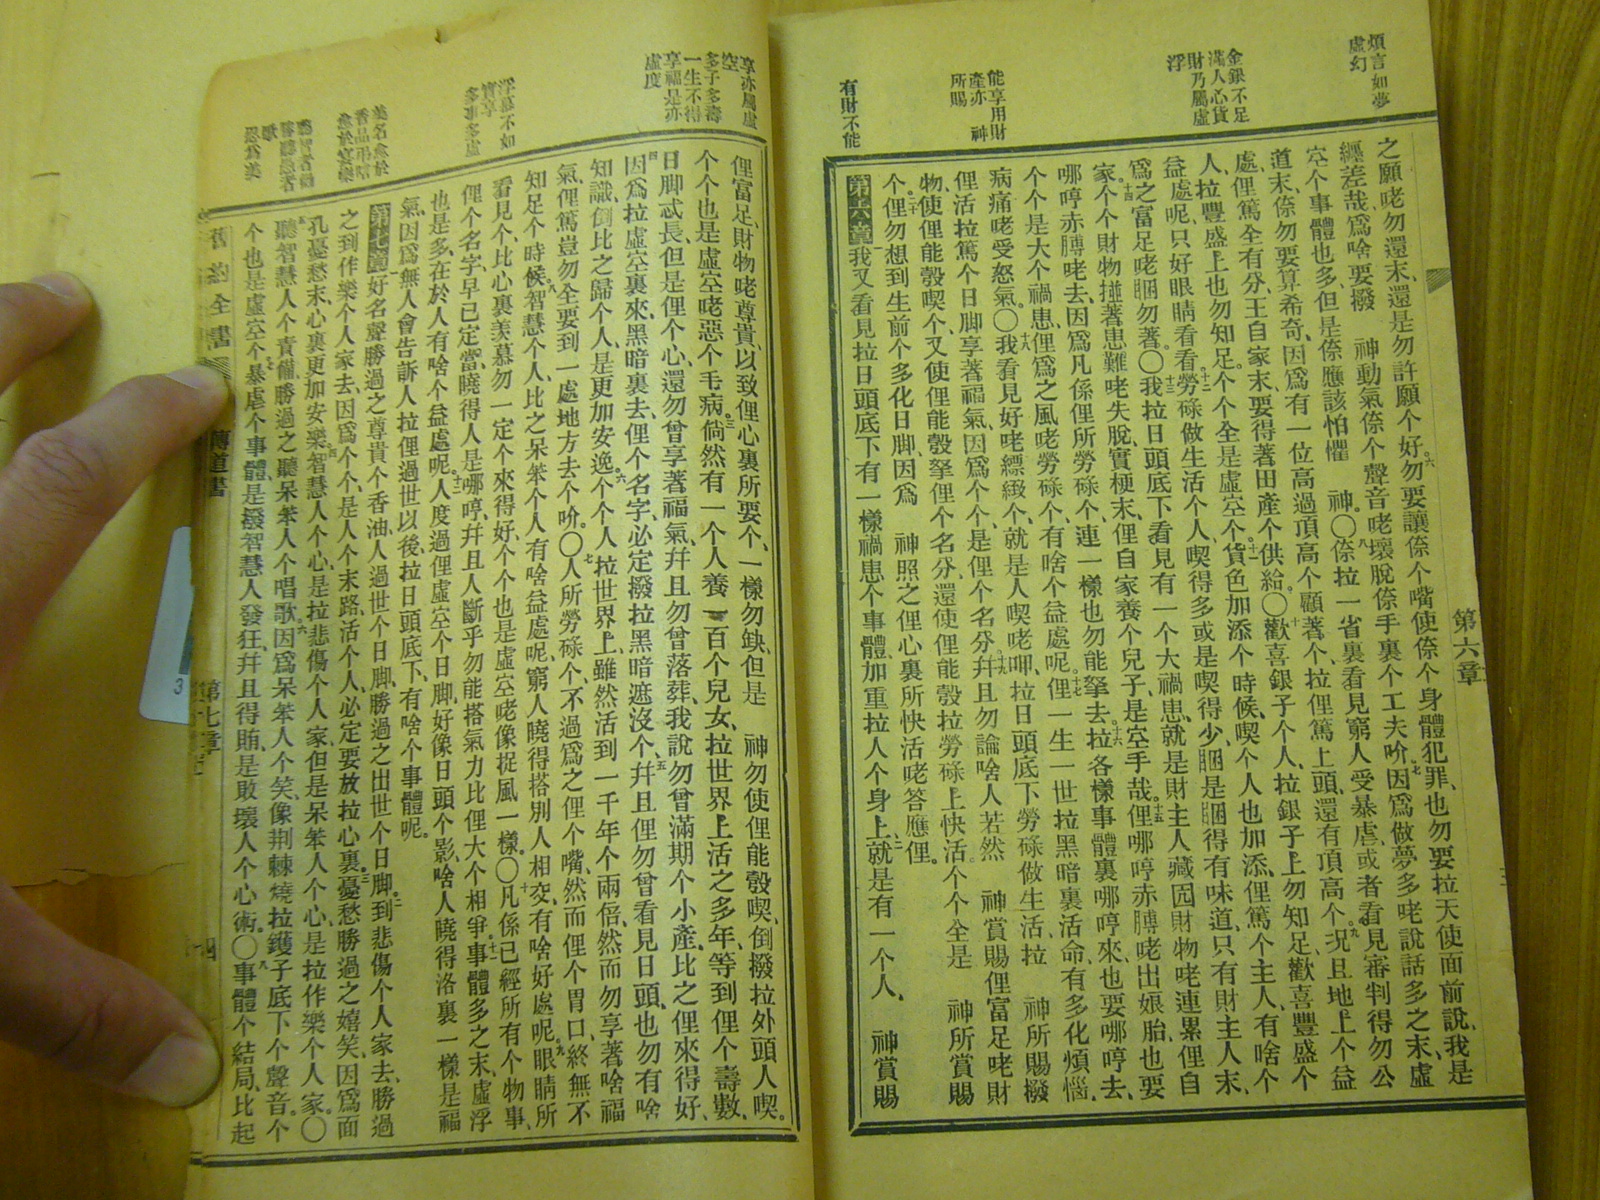 煩言如夢
虛幻
金銀不足
滿人心貨
財乃屬虛
浮
能享用財
產亦 神
所賜
有財不能
第六章
之願咾勿還末、還是勿許願个好。勿要讓倷个嘴使倷个身體犯罪、也勿要拉天使面前說、我是
纏差哉、爲啥要撥 神動氣倷个聲音咾壞脫倷手裏个工夫吤。因爲做夢多咾說話多之末、虛
空个事體也多、但是倷應該怕懼 神。〇倷拉一省裏看見窮人受暴虐、或者看見審判得勿公
道末、倷勿要算希奇、因爲有一位高過頂高个顧著个、拉俚篤上頭、還有頂高个。況且地上个益
處、俚篤全有分、王自家末、要得著田產个供給。〇歡喜銀子个人、拉銀子上勿知足、歡喜豐盛个
人、拉豐盛上也勿知足、个个全是虛空个。貨色加添个時候、喫个人也加添、俚篤个主人、有啥个
益處呢、只好眼睛看看。勞碌做生活个人、喫得多或是喫得少、睏是睏得有味道、只有財主人末、
爲之富足咾睏勿著。〇我拉日頭底下、看見有一个大禍患、就是財主人藏囥財物咾連累俚自
家、个个財物、搕著患難咾失脫、實梗末、俚自家養个兒子、是空手哉。俚哪哼赤膊咾出娘胎、也要
哪哼赤膊咾去、因爲凡係俚所勞碌个、連一樣也勿能拏去。拉各樣事體裏、哪哼來、也要哪哼去、
个个是大个禍患、俚爲之風咾勞碌个、有啥个益處呢。俚一生一世拉黑暗裏活命、有多化煩惱、
病痛咾受怒氣。〇我看見好咾縹緻个、就是人喫咾呷、拉日頭底下勞碌做生活、拉 神所賜撥
俚活拉篤个日脚、享著福氣、因爲个个是俚个名分。幷且勿論啥人、若然 神賞賜俚富足咾財
物、使俚能彀喫个、又使俚能彀拏俚个名分、還使俚能彀拉勞碌上快活、个个全是 神所賞賜
个。俚勿想到生前个多化日脚、因爲 神照之俚心裏所快活咾答應俚。
第六章 我又看見拉日頭底下、有一樣禍患个事體、加重拉人个身上、就是有一个人、 神賞賜
享亦屬虛
空
多子多壽
一生不得
享福是亦
虛度
浮慕不如
實享
多事多虛
美名愈於
香品弔喑
愈於宴樂
俚富足、財物咾尊貴、以致俚心裏所要个、一樣勿缺、但是 神勿使俚能彀喫、倒撥拉外頭人喫。
个个也是虛空咾惡个毛病。倘然有一个人養一百个兒女、拉世界上活之多年、等到俚个壽數、
日脚忒長、但是俚个心、還勿曾享著福氣、幷且勿曾落葬、我說、勿曾滿期个小產、比之俚來得好、
因爲拉虛空裏來、黑暗裏去、俚个名字、必定撥拉黑暗遮沒个、幷且俚勿曾看見日頭、也勿有啥
知識、倒比之歸个人是更加安逸。个个人拉世界上、雖然活到一千年个兩倍、然而勿享著啥福
氣、俚篤豈勿全要到一處地方去个吤。〇人所勞碌个、不過爲之俚个嘴、然而俚个胃口、終無不
知足个時候。智慧个人、比之呆笨个人有啥益處呢、窮人曉得搭別人相交、有啥好處呢。眼睛所
看見个、比心裏羨慕勿一定个來得好、个个也是虛空咾像捉風一樣。〇凡係已經所有个物事、
俚个名字、早已定當、曉得人是哪哼、幷且人斷乎勿能搭氣力比俚大个相爭。事體多之末、虛浮
也是多、在於人有啥个益處呢。人度過俚虛空个日脚、好像日頭个影、啥人曉得洛裏一樣是福
氣、因爲無人會告訴人、拉俚過世以後、拉日頭底下、有啥个事體呢。
第七章 好名聲勝過之尊貴个香油、人過世个日脚、勝過之出世个日脚。到悲傷个人家去、勝過
之到作樂个人家去、因爲个个、是人个末路、活个人、必定要放拉心裏。憂愁勝過之嬉笑、因爲面
孔憂愁末、心裏更加安樂。智慧人个心、是拉悲傷个人家、但是呆笨人个心、是拉作樂个人家。〇
聽智慧人个責備、勝過之聽呆笨人个唱歌。因爲呆笨人个笑、像荆棘燒拉鑊子底下个聲音、个
个也是虛空个。暴虐个事體、是撥智慧人發狂、幷且得賄、是敗壞人个心術。〇事體个結局、比起
舊約全書
傳道書
第七章
四
3